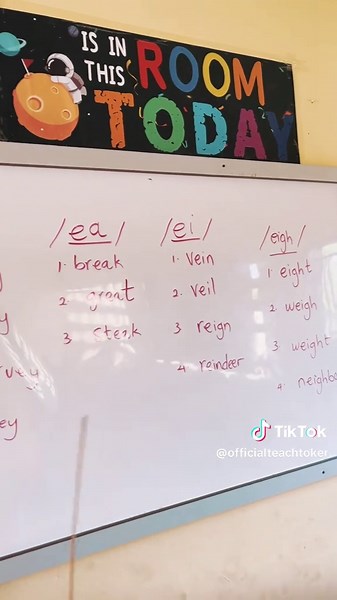 IS IN
THIS
ROOM
TODAY
/ea/
1. break
2. great
3 steak
/ei/
1. vein
2. veil
3 reign
4. reindeer
/eigh/
1 eight
2. weigh
3. weight
4. neighbo
ey
TikTok
@officialteachtoker